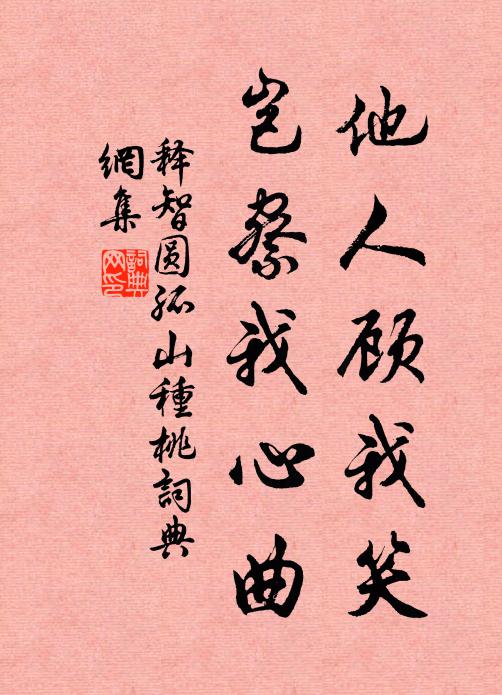 他人顾我笑
岂察我心曲
释智圆孤山種桃詞典
網集
詞典
网印